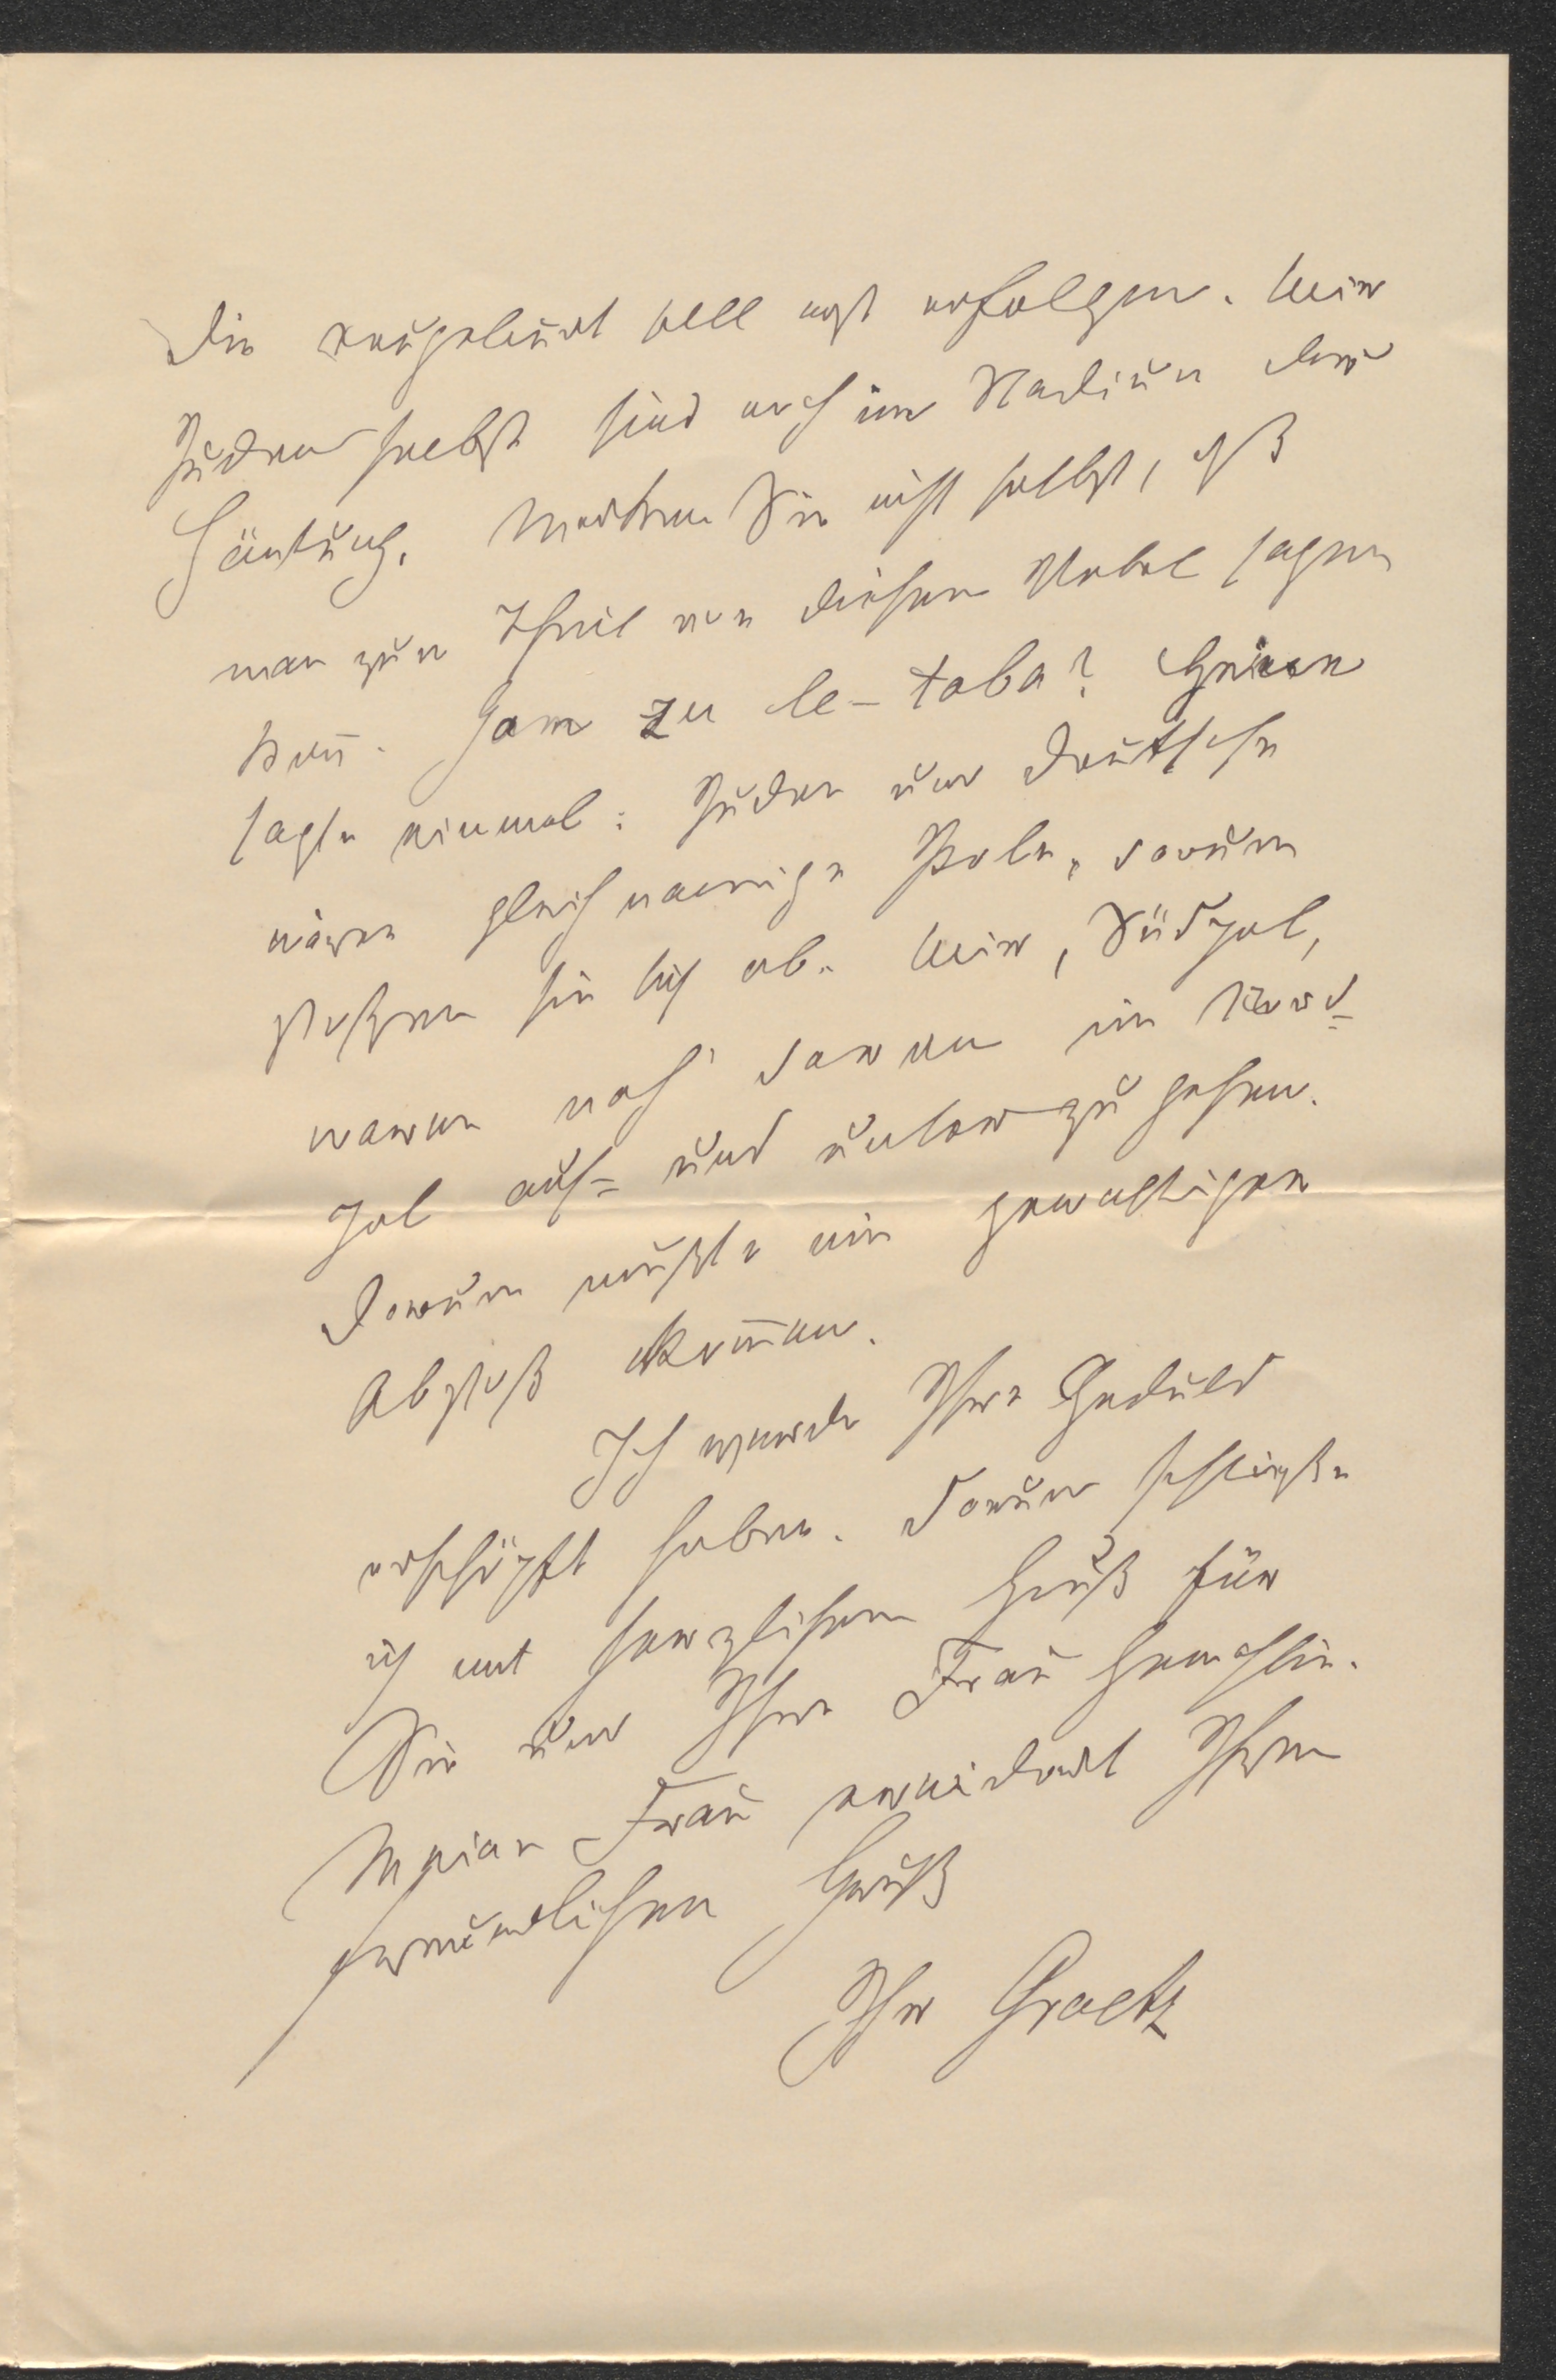 Die Neugeburt soll erst erfolgen. Wir
Juden selbst sind noch im Stadium der
Häutung. Merken Sie nicht selbst, daß
man zum Theil von diesem Nebel sagen
kan̄. gam zu le-toba?
sagte einmal: Juden und Deutsche
wären gleichnamige Pole, darum
stoßen sie sich ab. Wir, Südpol,
waren nah daran im Nord-
pol auf- und unterzugehen.
Darum mußte ein gewaltiger
Abstoß kom̄en.
Ich werde Ihre Geduld
erschöpft haben. Darum schließe
ich mit herzlichem Gruß für
Sie und Ihre Frau Gemahlin.
Meine Frau erwidert Ihren
freundlichen Gruß
Ihr Graetz